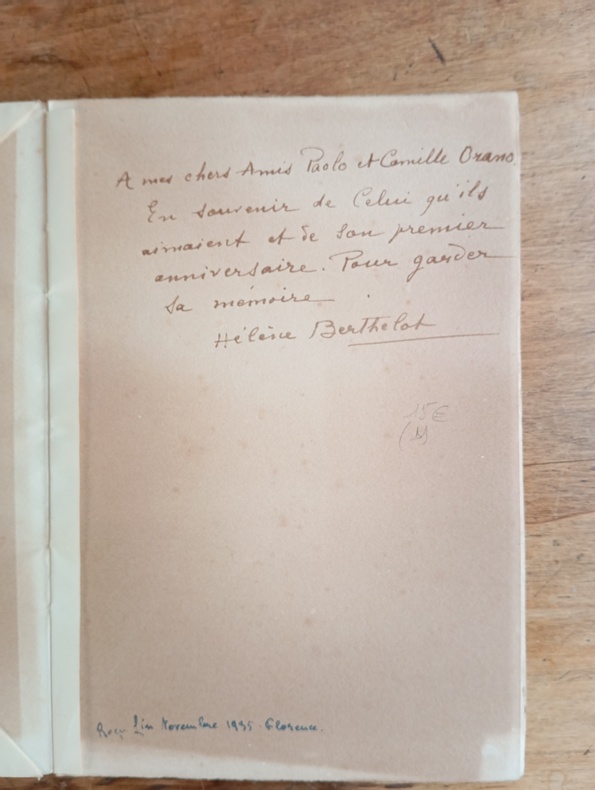 A mes chers Amis Paolo et Camille Orano
En souvenir de Celui qu'ils
aimaient et de Son premier
anniversaire. Pour garder
Sa mémoire.
Hélène Berthelot
15€
Reçu fin Novembre 1935 - Florence.